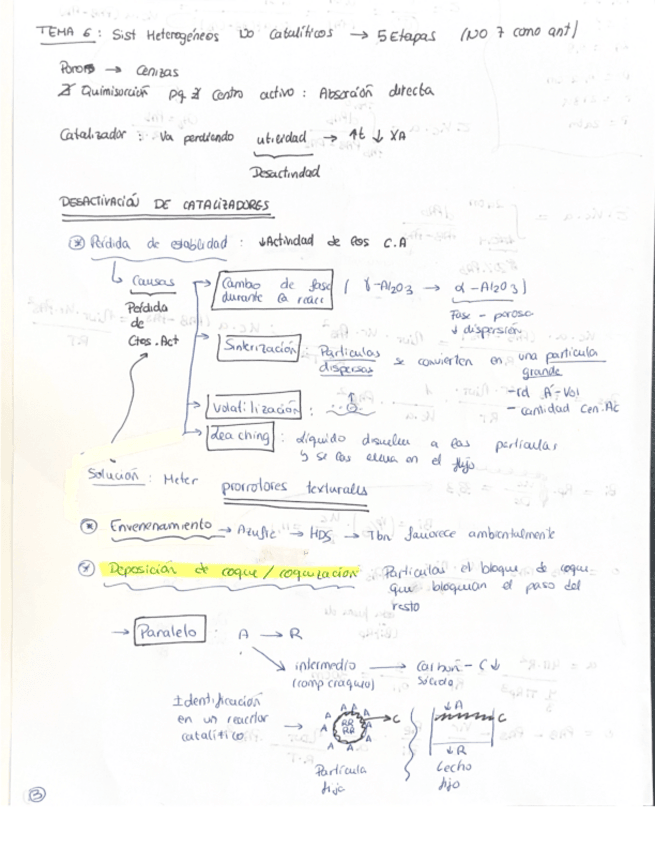 TEMA 6 : Sist Heterogéneos No Catalíticos → 5 Etapas (NO 7 como ant)
Poros → Cenizas
∄ Quimisorción pq ∄ Centro activo : Absorción directa
Catalizador : Va perdiendo actividad → ↑t ↓ XA
Desactividad
DESACTIVACIÓN DE CATALIZADORES
* Pérdida de estabilidad : ↓Actividad de los C.A
↳ Causas → Cambio de fase durante la reacc ( γ-Al2O3 → α-Al2O3 )
Pérdida de Ctos.Act
Fase - porosa
↓ dispersión
Sinterización : Partículas dispersas se convierten en una partícula grande
-rd A-Vol
- cantidad Cen.Ac
Volatilización :
Leaching : líquido disuelve a las partículas
↳ se las lleva en el flujo
Solución : Meter promotores texturales
* Envenenamiento → Azufre → HDS → Tbn favorece ambientalmente
* Deposición de coque / coquización Partículas el bloque de coque que bloquean el paso del resto
→ Paralelo : A → R
intermedio (comp craqueo) → Carbón - C ↓
Identificación en un reactor catalítico →
A A A A A A A A A
RR
RR
C
↓ A
C
↓ R
Partícula fija
Lecho fijo
3